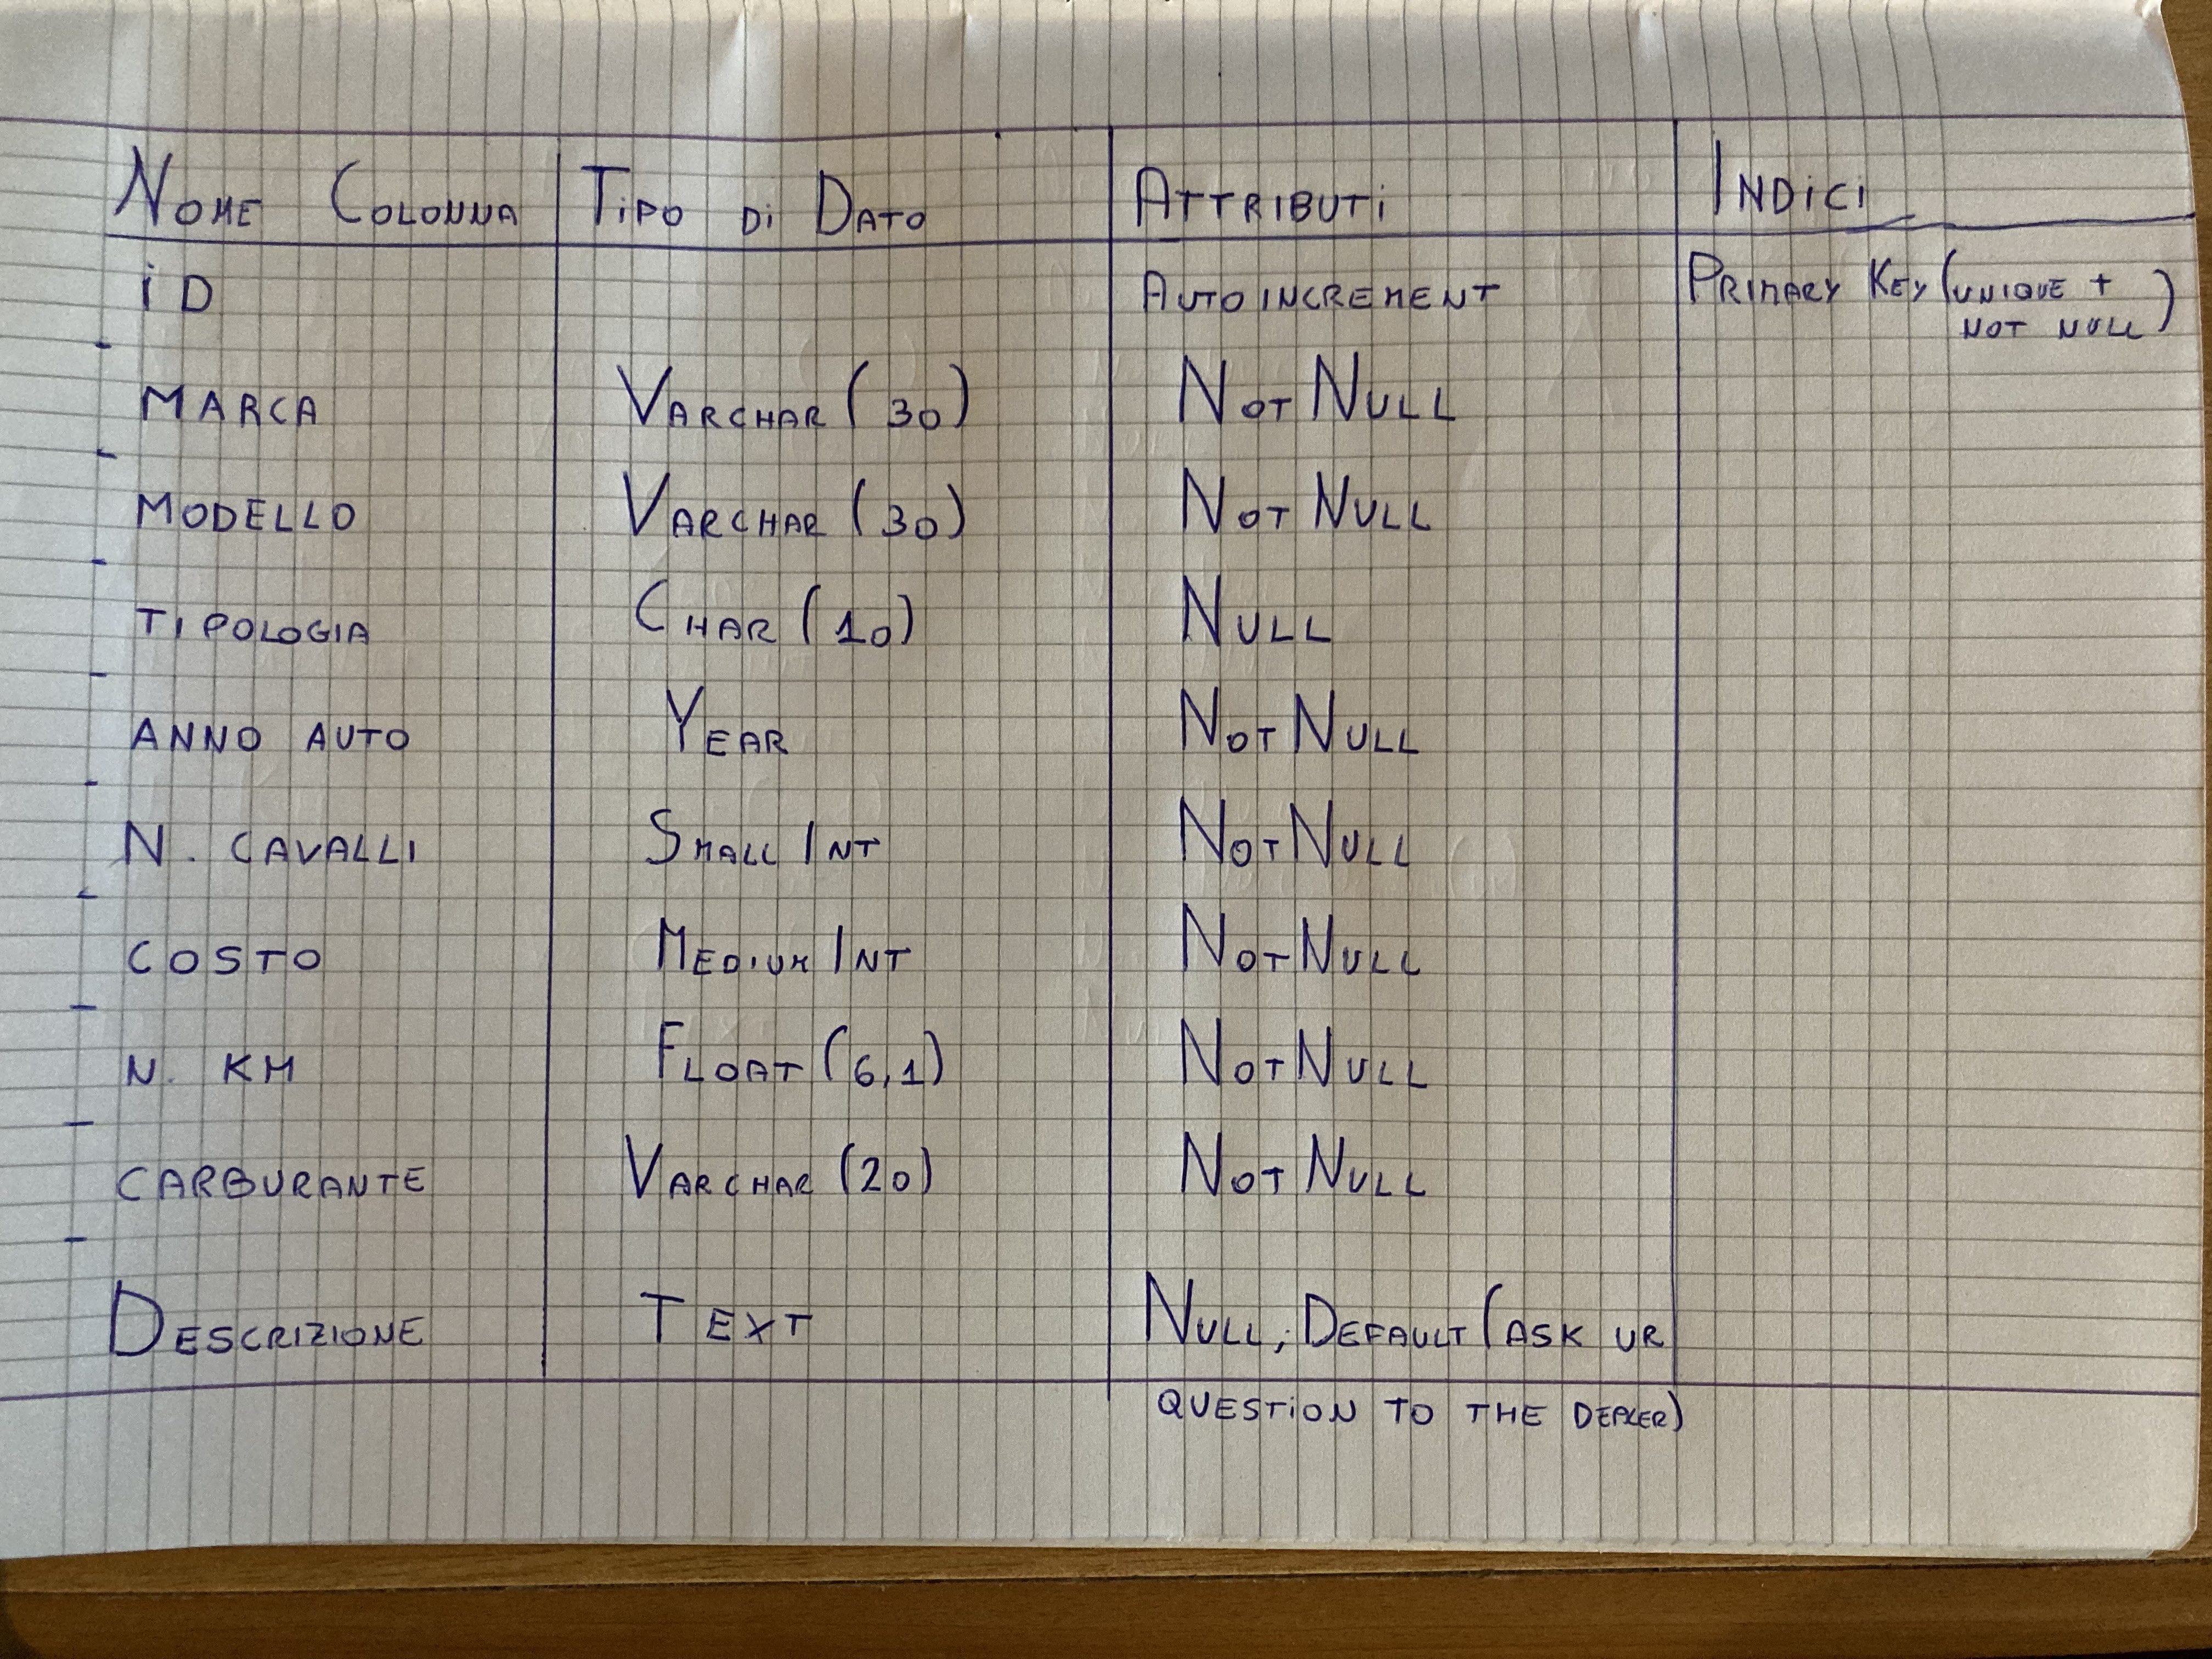 Nome Colonna Tipo di Dato Attributi Indici
iD Autoincrement Primary Key (unique +
not null)
MARCA Varchar (30) Not Null
MODELLO Varchar (30) Not Null
TIPOLOGIA Char (10) Null
ANNO AUTO Year Not Null
N. CAVALLI Small Int Not Null
COSTO Medium Int Not Null
N. KM Float (6,1) Not Null
CARBURANTE Varchar (20) Not Null
Descrizione Text Null, Default (ask ur
question to the dealer)